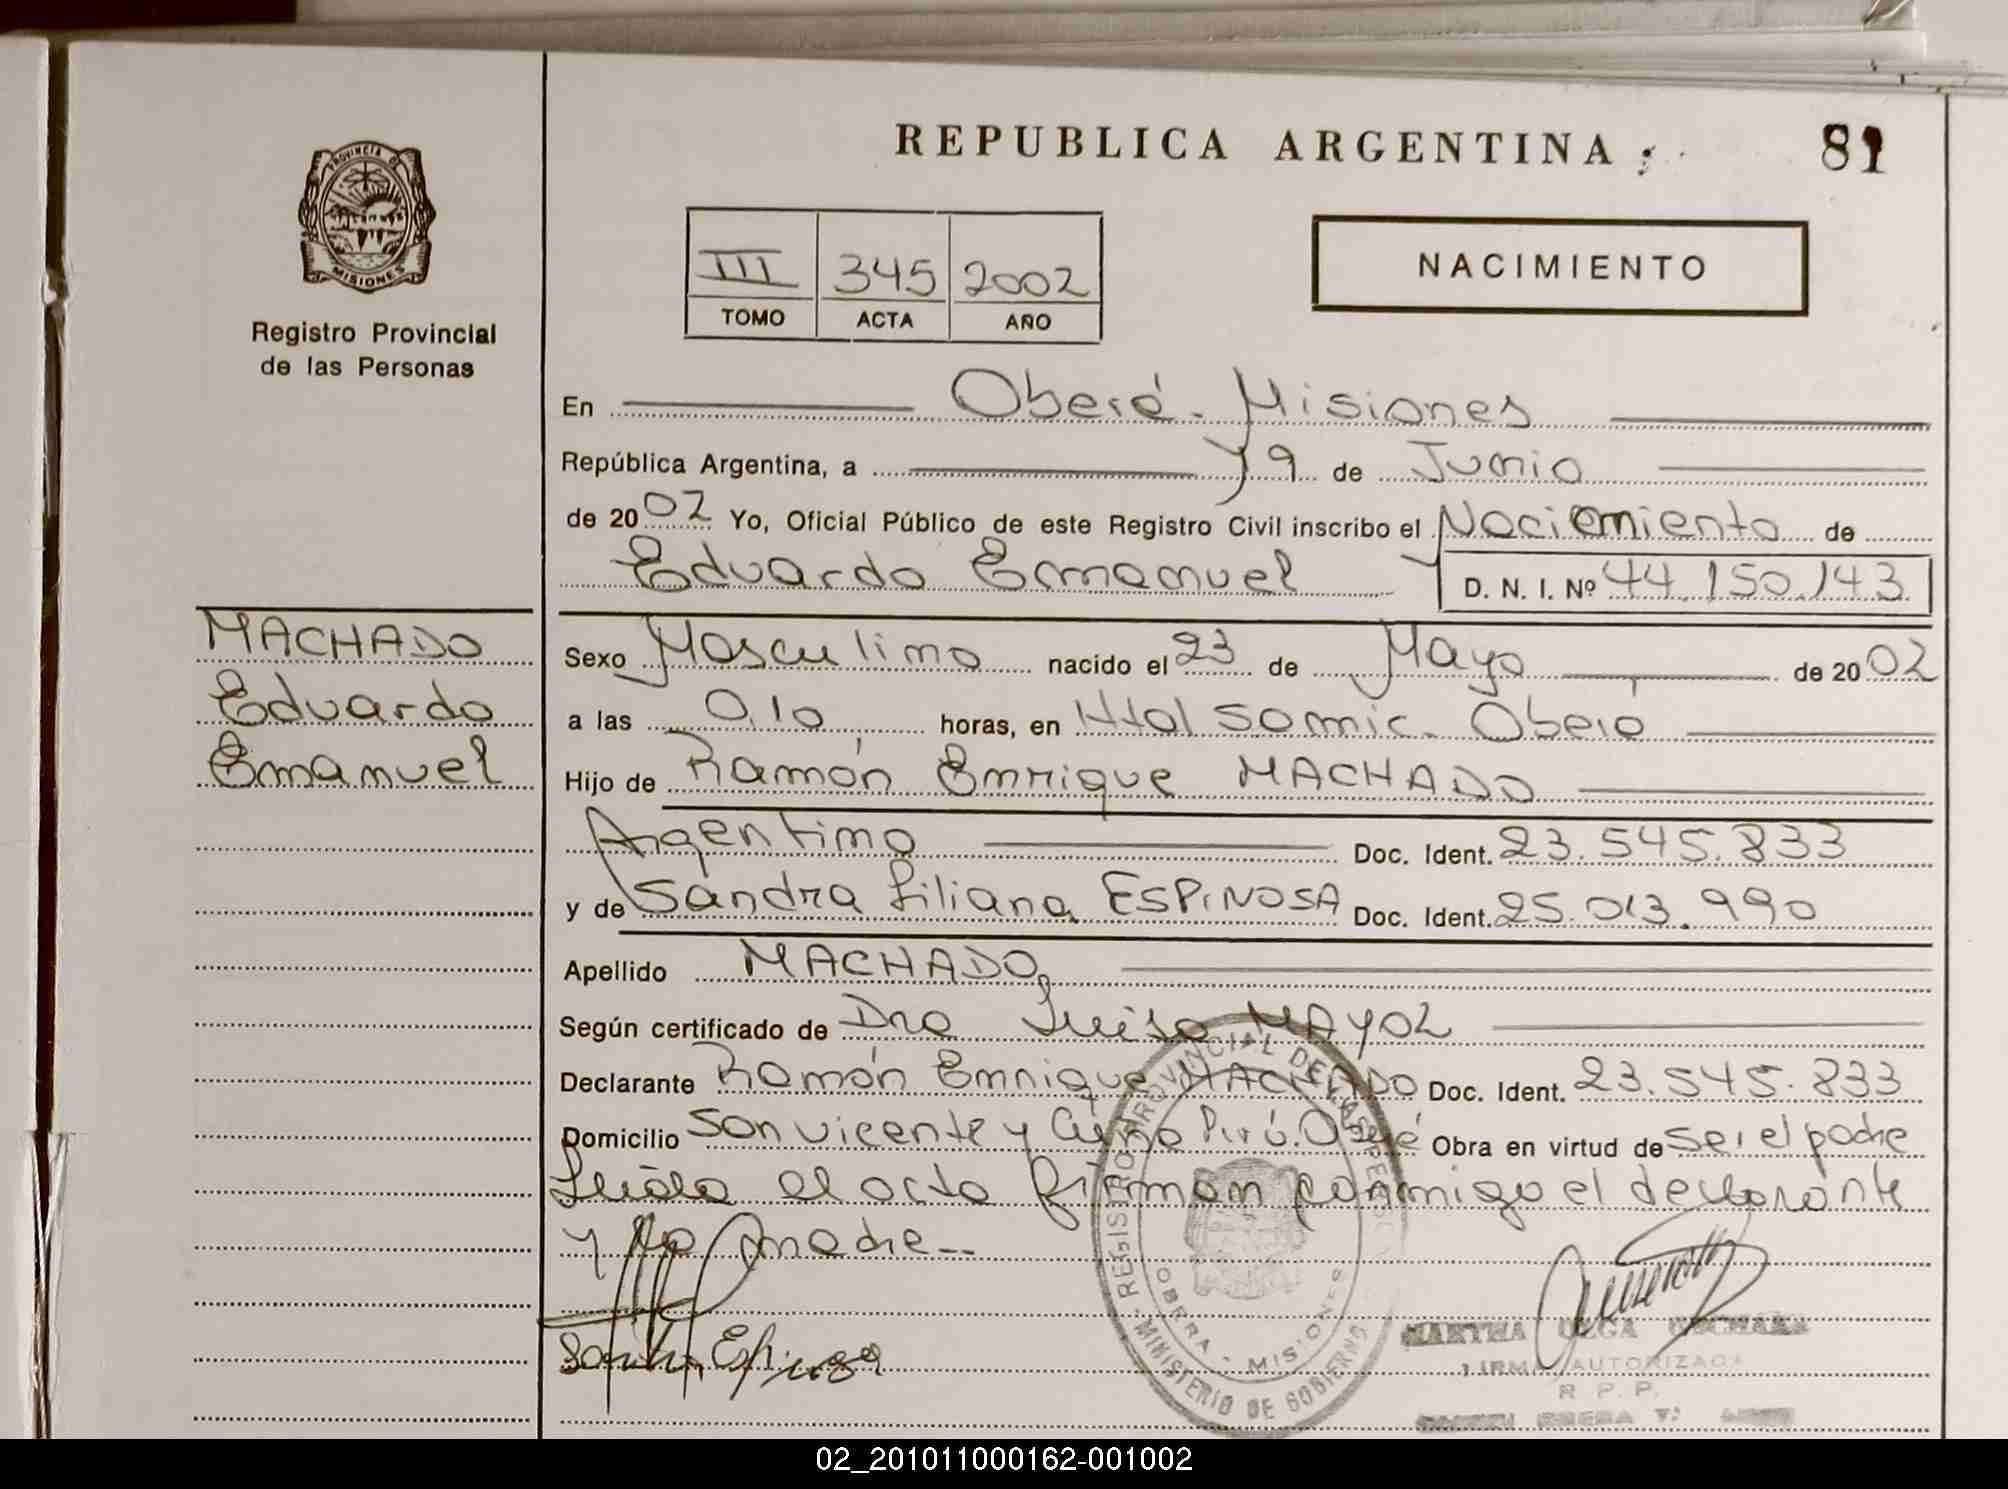 REPUBLICA ARGENTINA
81
PROVINCIA DE
MISIONES
Registro Provincial
de las Personas
III 345 2002
TOMO ACTA AÑO
NACIMIENTO
En Oberá - Misiones
República Argentina, a 19 de Junio
de 2002 Yo, Oficial Público de este Registro Civil inscribo el Nacimiento de
Eduardo Emanuel D. N. I. Nº 44.150.143
MACHADO
Eduardo
Emanuel
Sexo Masculino nacido el 23 de Mayo de 2002
a las 0,10 horas, en Htal Samic. Oberá
Hijo de Ramón Enrique MACHADO
Argentino Doc. Ident. 23.545.833
y de Sandra Liliana ESPINOSA Doc. Ident. 25.013.990
Apellido MACHADO
Según certificado de Dra Luisa MAYOL
Declarante Ramón Enrique MACHADO Doc. Ident. 23.545.833
Domicilio San Vicente y Oberá Obra en virtud de ser el padre
Leída el acta firman conmigo el declarante
y la madre
Sandra Espinosa
REGISTRO PROVINCIAL DE LAS PERSONAS
OBERA - MISIONES
MINISTERIO DE GOBIERNO
MARTHA OLGA
FIRMA AUTORIZADA
R. P. P.
OBERA
02_201011000162-001002